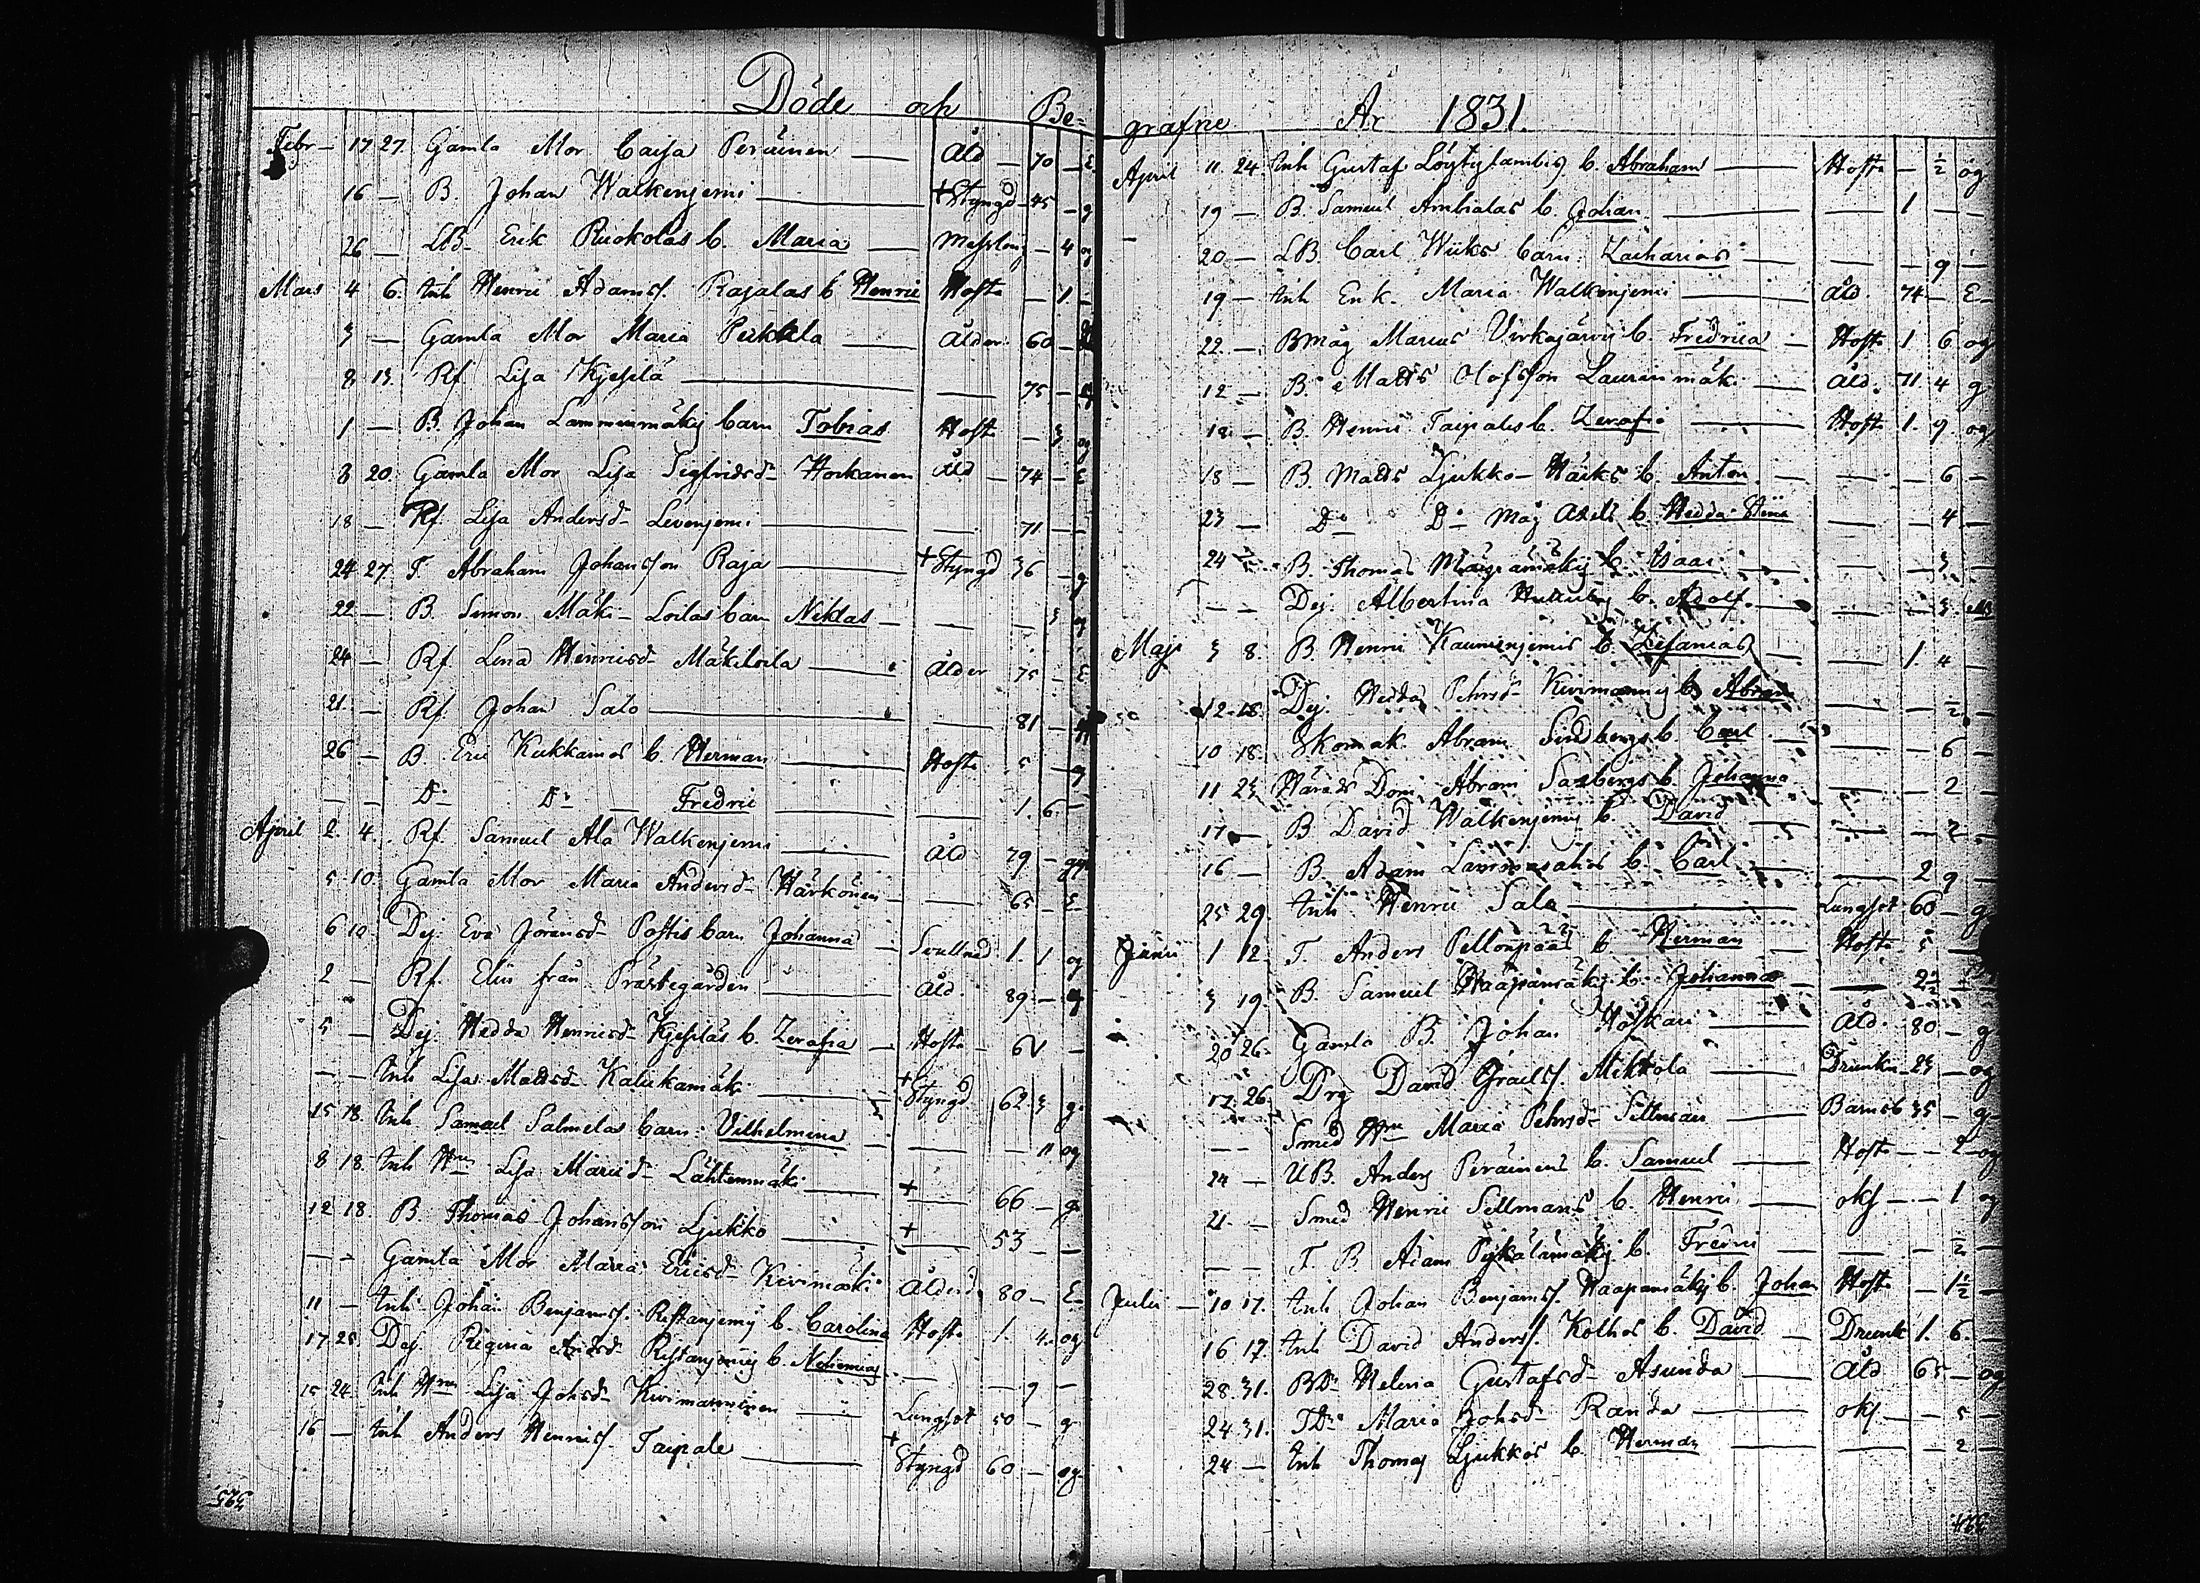 Döde och Be-
Febr 17 27. Gamla Mor Caisa Peräinen Åld 70 E
16 B. Johan Walkenjemi + Styngd 45 g
26 LB. Erik Ruokolas b. Maria 4 og
Mars 4 6. Inh Henric Adamss. Rajalas b Henric Hosta 1
3 Gamla Mor Maria Pukkila Ålder 60
8 13. Rf. Lisa 75
1 B. Johan Lamminmäkis barn Tobias Hosta 3 og
8 20. Gamla Mor Lisa Sigfridsd. Horkanen Åld 74 E
18 Rf. Lisa Andersd. Levenjemi 71
24 27. T. Abraham Johansson Raja + Styngd 36 g
22 B. Simon Mäki-Loilas barn Niklas 3 og
24 Rf. Lena Henricsd. Mäkiloila Ålder 75 E
21. Rf. Johan Salo 81
26 B. Eric Kukkamos b. Herman Hosta 5 g
Do Do Fredric 1. 6
April 2. 4. Rf. Samuel Ala Walkenjemi Åld 79
5 10. Gamla Mor Maria Andersd. Härkönen 65 E
6 10 Dej. Eva Jöransd. Postis barn Johanna Svullnad 1. 1 og
2 Rf. Elin från Prästegården Åld. 89
5 Dej. Hedda Henricsd. b. Zerafia Hosta 6
Inh Lisa Mattsd. Kalukamäki + Styngd 62 3 g
15 18. Inh Samuel Salmelas barn Vilhelmina 11 og
8 18. Inh Hru Lisa Maricsd. Lähtenmäki + 66 g
12 18. B. Thomas Johansson Ljukko + 53
Gamla Mor Maria Ericsd. Kivimäki Ålderd 80 E
11 Inh Johan Benjamss. Ristanjemis b. Carolina Hosta 1. 4 og
17 25. Dej. Regina Andrsd. Ristanjemis b. Nehemias 9
15 24. Inh Hru Lisa Johsd. Kivimanninen Lungsot 50 g
16 Inh Anders Henricss. Taipale + Styngd 60 og
525
grafne År 1831.
April 11. 24. Inh Gustaf b. Abraham Hosta ½ og
19 B. Samuel Ambialas b. Johan 1
20 LB. Carl Wiiks barn: Zacharias 9
19 Inh Enk. Maria Walkenjemi Åld. 74 E
22. Bmåg Marcus Virkajärvis b. Fredrica Hosta 1 6 og
12 B. Matts Olofsson Laurinmäki Åld. 71. 4 g
18. B. Henric Taipales b. Zerafia Hosta 1. 9. og
18 B. Matts Ljukko-Häiks b. Anton 6
23 Do Do Måg Axels b. Hedda Stina 4
24 B. Thomas b. Isaac 3
Dej. Albertina b. Adolf 3
Maji 3 8. B. Henric Kaunenjemis b. Zefanias 1. 4
12 18. Dej. Hedda Pehrsd. b. Abram ½
10 18. Skomak. Abram Lindbergs b. Carl 6
11 23. Härads Dom. Abram b. Johanna 2
17 B. David Walkenjemis b. David 2
16 B. Adam b. Carl 2 9
25 29. Inh Henric Salo Lungsot 60 g
Junii 1 12. T. Anders Pellonpääs b. Herman Hosta 5
3 19. B. Samuel Haapamäkis b. Johanna 2½
20 26. Gamla B. Johan Höskari Åld. 80 g
17. 26. Drg David Graelss. Mikkola Drunkn 23 og
Smed Hru Maria Pehrsd. Sillman Barnsb 35 g
24 UB. Anders Peräinens b. Samuel Hosta 2 og
21 Smed Henric Sillmans b. Henric okj 1 og
T. B Adam b. Fredric ½
Julii 10 17. Inh Johan Benjamss. Haapamäkis b. Johan Hosta 1½
16 17. Inh David Anderss. Kolhos b. David Drunk 1. 6.
28. 31. BDr Helena Gustafsd. Asunda Åld 65 og
24 31. TDr Maria Johsd. Randa okj 5
24 Inh Thomas Ljukkos b. Herman 2